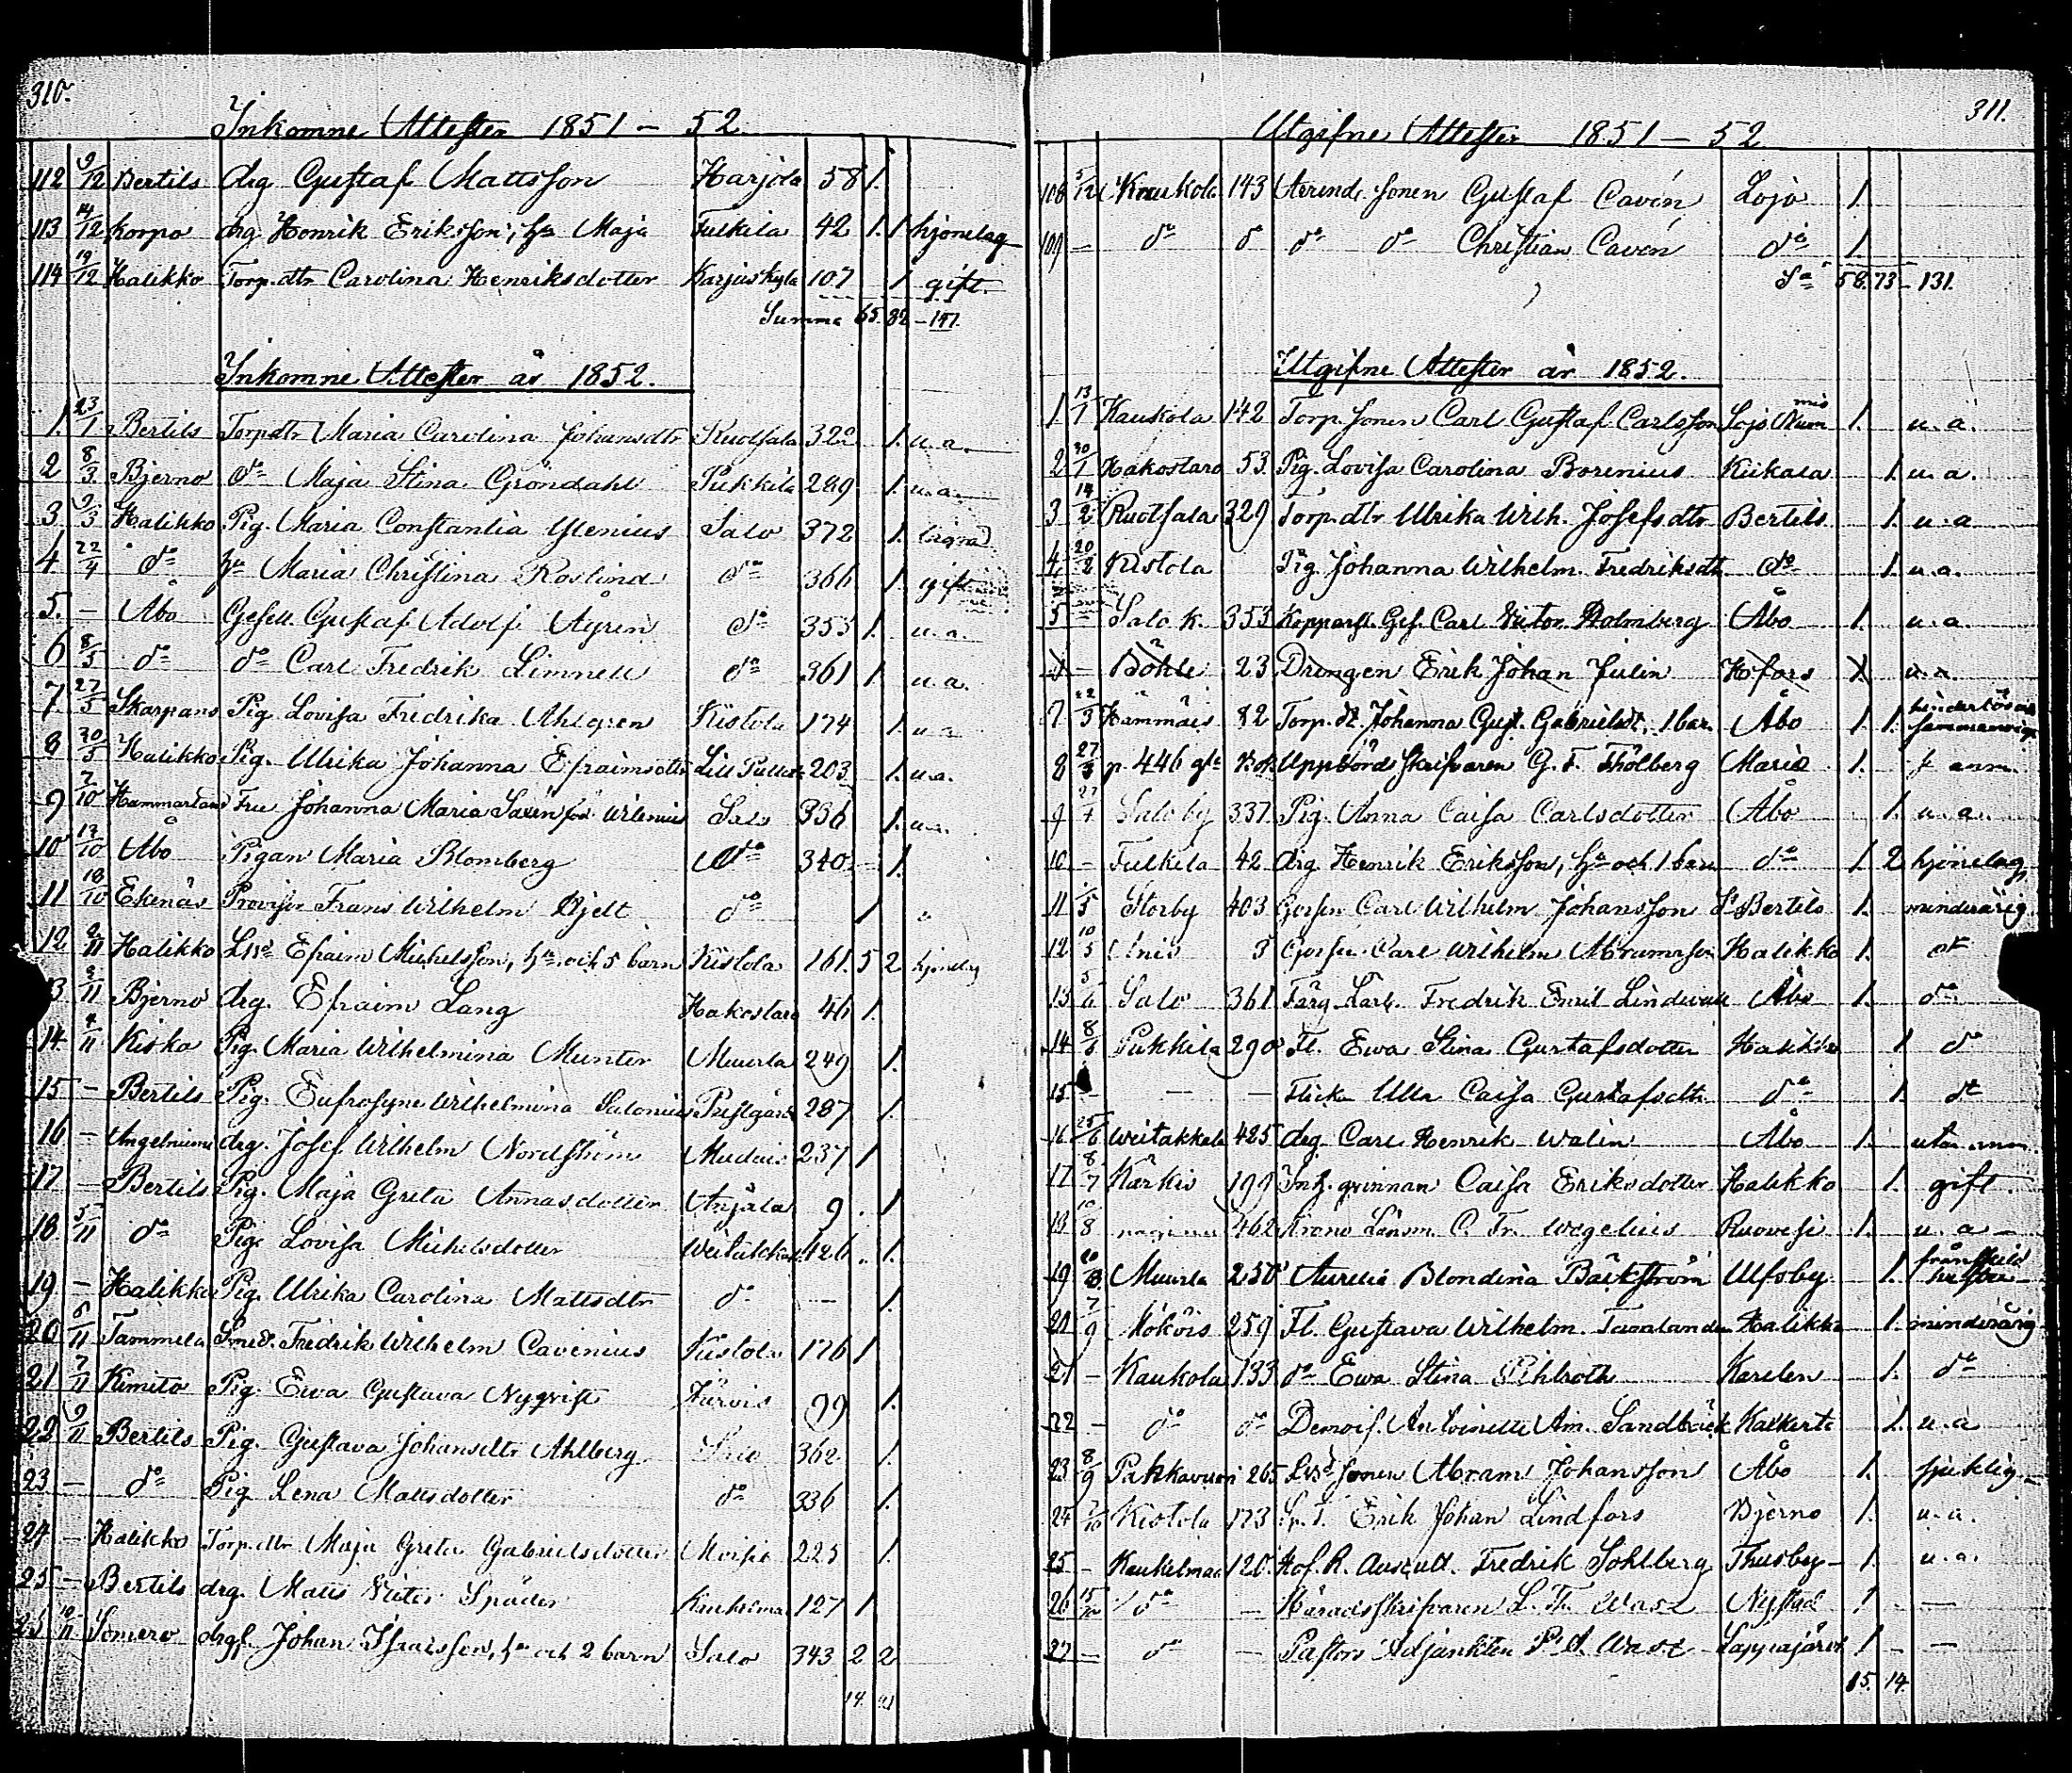 310.
Inkomne Attester 1851 - 52
112 9/12 Bertils drg Gustaf Mattsson Harjola 58 1.
113 14/12 Korpo drg Henrik Eriksson, hu Maja Fulkila 42 1. 1 hjonelag
114 19/12 Halikko Torp.dtr Carolina Henriksdotter Karjaskyla 107 1 gift.
Summa 65. 82 - 147.
Inkomne Attester år 1852.
1 23/1 Bertils Torp.dtr Maria Carolina Johansdtr Ruotsala 322 1. u.a.
2 8/3 Bjerno do Maja Stina Gröndahl Pukkila 289 1. u.a.
3 9/3 Halikko Pig. Maria Constantia Glenius Salo 372 1.
4 22/4 do hu Maria Christina Roslind do 366 1. gift
5. - Åbo Gesell Gustaf Adolf Ågren do 353 1. u.a.
6 8/5 do do Carl Fredrik Limnell do 361 1 u.a.
7 27/5 Skarpans Pig. Lovisa Fredrika Ahlgren Kistola 174 1 u.a.
8 30/5 Halikko Pig. Ulrika Johanna Efraimsdtr Lill 203 1. u.a.
9 7/10 Hammarland Fru Johanna Maria Salo 336 1. u.a.
10 17/10 Åbo Pigan Maria Blomberg do 340 - 1.
11 18/10 Ekenäs Provisor Frans Wilhelm Hjelt do 1
12 2/11 Halikko Efraim Michelsson, hu och 5 barn Kistola 161. 5 2 hjonelag
13 2/11 Bjerno drg. Efraim Lang Hakostaro 46 1.
14 4/11 Kisko Pig. Maria Wilhelmina Munter Muurla 249 1.
15 - Bertils Pig. Eufrosyne Wilhelmina Salonius Prestgård 287 1.
16 - Angelniemi drg. Josef Wilhelm Nordström 237 1
17 - Bertils Pig. Maja Greta Annasdotter Anjala 9. 1
18. 5/11 do Pig. Lovisa Michelsdotter Weitakkala 426 1.
19 - Halikko Pig. Ulrika Carolina Mattsdtr do - 1.
20 6/11 Tammela Smed. Fredrik Wilhelm Cavenius Kistola 176 1
21 7/11 Kimito Pig. Ewa Gustava Nyqvist 99 1.
22 9/11 Bertils Pig. Gustava Johansdtr Ahlberg 362 1.
23 - do Pig. Lena Mattsdotter do 336 1.
24 - Halikko Torp.dtr Maja Greta Gabrielsdotter 225 1.
25 - Bertils drg. Matts 127 1
10/11 Somero Johan Isaksson, hu och 2 barn Salo 343 2 2
14.
311.
Utgifne Attester 1851 - 52
108 5/12 Kaukola 143 Arrend. sonen Gustaf Cavén Lojo 1.
109 - do do do do Christian Cavén do 1.
Sa 58. 73 - 131.
Utgifne Attester år 1852.
1 13/1 Kaukola 142 Torp. sonen Carl Gustaf Carlsson Lojo 1. u.a.
2 30/1 Hakostaro 53. Pig. Lovisa Carolina Borenius Kiikala 1. u.a.
3 14/2 Ruotsala 329 Torp.dtr Ulrika Wilh. Josefsdtr Bertils 1. u.a
4 20/2 Kistola Pig. Johanna Wilhelm. Fredriksdtr do 1. u.a.
5 - Salo k. 353 Kopparsl. Ges. Carl Victor Holmberg Åbo 1. u.a.
- Böhle 23 Drengen Erik Johan Julin H:fors 1 u.a.
7 22/3 Hämmäis 82 Torp. dt. Johanna Gust. Gabrielsdt. 1 bar. Åbo 1. 1.
8 27/3 p. 446 gla bok Uppbörds skrifvaren G. F. Thölberg Maria 1.
9 27/4 Salo by 337. Pig. Anna Caisa Carlsdotter Åbo 1. u.a.
10 - Fulkila 42 drg Henrik Eriksson, hu och 1 barn do 1. 2 hjonelag
11 1/5 Storby 403 Gossen Carl Wilhelm Johansson St Bertils 1. minderårig
12 10/5 3 Gossen Carl Wilhelm Abramsson Halikko 1. do
13 5/6 Salo 361 Färg. Lärl. Fredrik Emil Lindwall Åbo 1. do
14 8/6 Pukkila 290 Fl. Ewa Stina Gustafsdotter Halikko 1 do
15 - - - Flicka Ulla Caisa Gustafsdtr do 1 do
16 25/6 Weitakkala 425 drg. Carl Henrik Walin Åbo 1. utan anm.
17 8/7 Kärkis 199 Inh. qvinnan Caisa Eriksdotter Halikko 1. gift.
18 10/8 462 Krono Länsm. C. Fr. Wegelius Ruovesi 1. u.a -
19 Muurla 250 Aurelia Blondina Bäckström Ulfsby 1.
20 7/9 259 Fl. Gustava Wilhelm. Halikko 1. minderårig
21 - Kaukola 133 do Ewa Stina Pihlroth Karelen 1. do
22 - do do Demois. Antoinette Am. Sandbäck 1. u.a
23 8/9 265 sonen Abram Johansson Åbo 1. sjuklig -
24 Kistola 173 Erik Johan Lindfors Bjerno 1. u.a.
25 - 120. Hof. R. Auscult. Fredrik Sohlberg Thusby - 1. u.a.
26 15/10 do - Häradsskrifvaren L. Th. Wasz Nystad 1 -
27 - do - Pastors Adjunkten Wasz Lappajärvi 1 - -
15. 14.